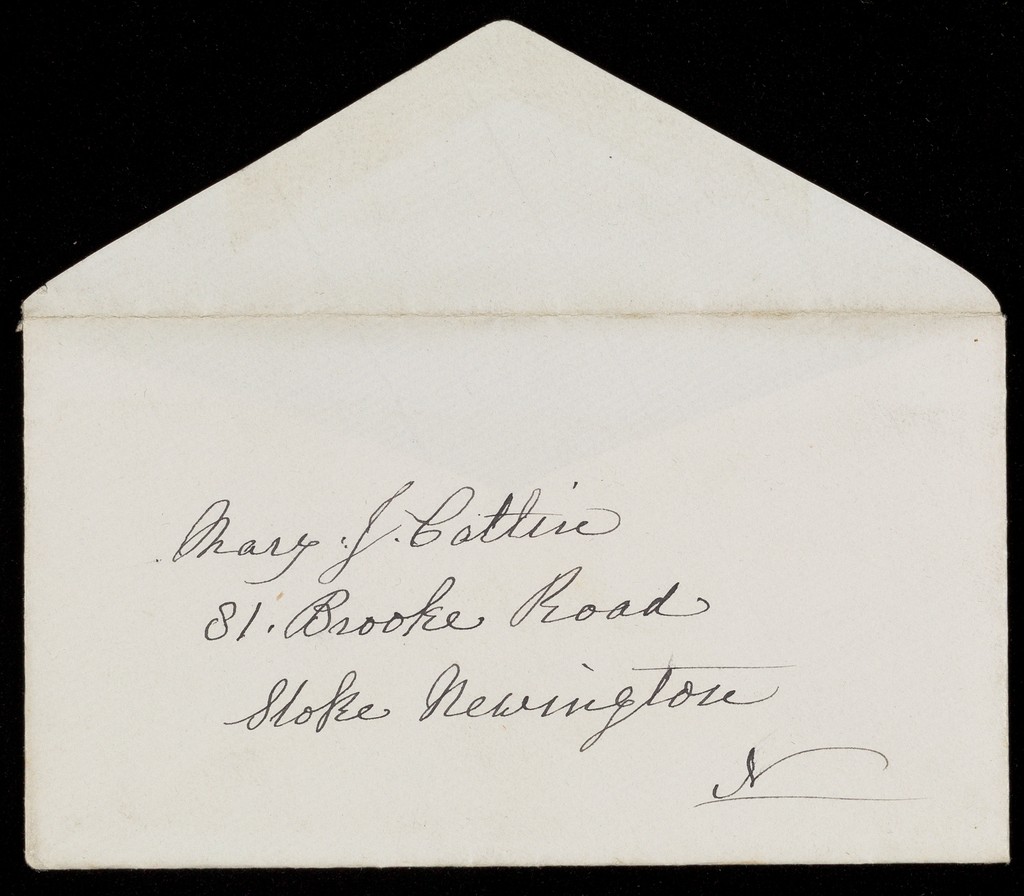 Mary. J. Cattin
81. Brooke Road
Stoke Newington
N